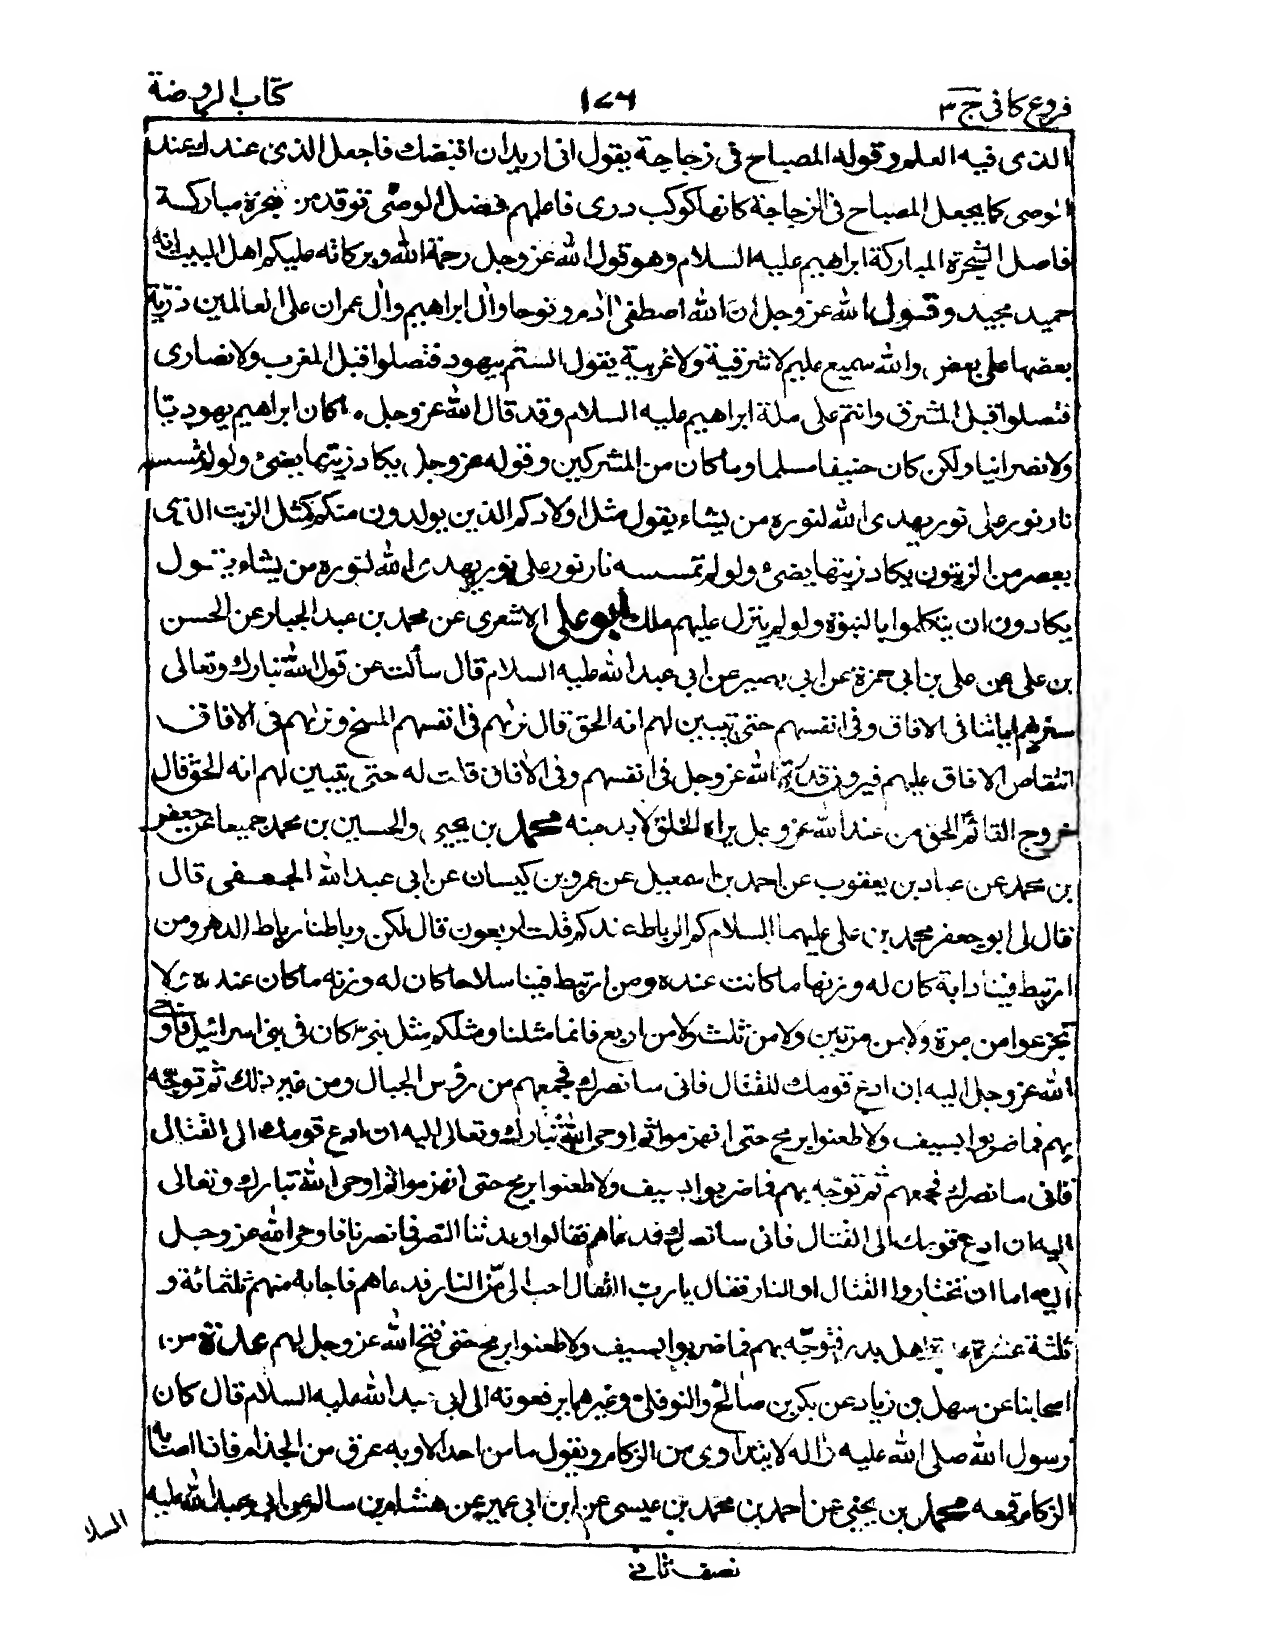 فروع كافى ج ٣
١٧٦
كتاب الروضة
الذى فيه العلم وقوله المصباح فى زجاجة يقول انى اريد ان اقبضك فاجعل الذى عندك عند
الوصى كما يجعل المصباح فى الزجاجة كانها كوكب درى فاعلمهم فضل الوصى توقد من شجرة مباركة
فاصل الشجرة المباركة ابراهيم عليه السلام وهو قول الله عز وجل رحمة الله وبركاته عليكم اهل البيت انه
حميد مجيد وقول الله عز وجل ان الله اصطفى ادم ونوحا وال ابراهيم وال عمران على العالمين ذرّية
بعضها على بعض والله سميع عليم لا شرقية ولا غربية يقول لستم بيهود فتصلوا قبل المغرب ولا نصارى
فتصلوا قبل المشرق وانتم على ملة ابراهيم عليه السلام وقد قال الله عز وجل ما كان ابراهيم يهوديّا
ولا نصرانيا ولكن كان حنيفا مسلما وما كان من المشركين وقوله عز وجل يكاد زيتها يضئ ولو لم تمسسه
نار نور على نور يهدى الله لنوره من يشاء يقول مثل اولادكم الذين يولدون منكم كمثل الزيت الذى
يعصر من الزيتون يكاد زيتها يضئ ولو لم تمسسه نار نور على نور يهدى الله لنوره من يشاء يقول
يكادون ان يتكلموا بالنبوة ولو لم ينزل عليهم ملك ابو على الاشعرى عن محمد بن عبد الجبار عن الحسن
بن على عن على بن ابى حمزة عن ابى بصير عن ابى عبد الله عليه السلام قال سألت عن قول الله تبارك وتعالى
سنريهم اياتنا فى الافاق وفى انفسهم حتى يتبين لهم انه الحق قال نريهم فى انفسهم المسخ ونريهم فى الافاق
انتقاص الافاق عليهم فيرون قدرة الله عز وجل فى انفسهم وفى الافاق قلت له حتى يتبين لهم انه الحق قال
خروج القائم الحق من عند الله عز وجل يراه الخلق لا بد منه محمد بن يحيى والحسين بن محمد جميعا عن جعفر
بن محمد عن عباد بن يعقوب عن احمد بن اسمعيل عن عمرو بن كيسان عن ابى عبد الله الجعفى قال
قال لى ابو جعفر محمد بن على عليهما السلام كم الرباط عندكم قلت اربعون قال لكن رباطنا رباط الدهر ومن
ارتبط فينا دابة كان له وزنها ما كانت عنده ومن ارتبط فينا سلاحا كان له وزنه ما كان عنده لا
تجزعوا من مرة ولا من مرتين ولا من ثلث ولا من اربع فانما مثلنا ومثلكم مثل نبى كان فى بنى اسرائيل فاوحى
الله عز وجل اليه ان ادع قومك للقتال فانى سانصرك فجمعهم من رؤس الجبال ومن غير ذلك ثم توجّه
بهم فما ضربوا بسيف ولا طعنوا برمح حتى انهزموا ثم اوحى الله تبارك وتعالى اليه ان ادع قومك الى القتال
فانى سانصرك فجمعهم ثم توجّه بهم فما ضربوا بسيف ولا طعنوا برمح حتى انهزموا ثم اوحى الله تبارك وتعالى
اليه ان ادع قومك الى القتال فانى سانصرك فدعاهم فقالوا وعدتنا النصر فما نصرنا فاوحى الله عز وجل
اليه اما ان تختاروا القتال او النار فقال يا ربّ القتال احب الى من النار فدعاهم فاجابه منهم ثلثمائة و
ثلثة عشر عدة اهل بدر فتوجّه بهم فما ضربوا بسيف ولا طعنوا برمح حتى فتح الله عز وجل لهم عدة من
اصحابنا عن سهل بن زياد عن بكر بن صالح والنوفلى وغيرهما يرفعونه الى ابى عبد الله عليه السلام قال كان
رسول الله صلى الله عليه واله لا يتداوى من الزكام ويقول ما من احد الا وبه عرق من الجذام فاذا اصابه
الزكام قمعه محمد بن يحيى عن احمد بن محمد بن عيسى عن ابن ابى عمير عن هشام بن سالم عن ابى عبد الله عليه
السلا
نصف ثانى